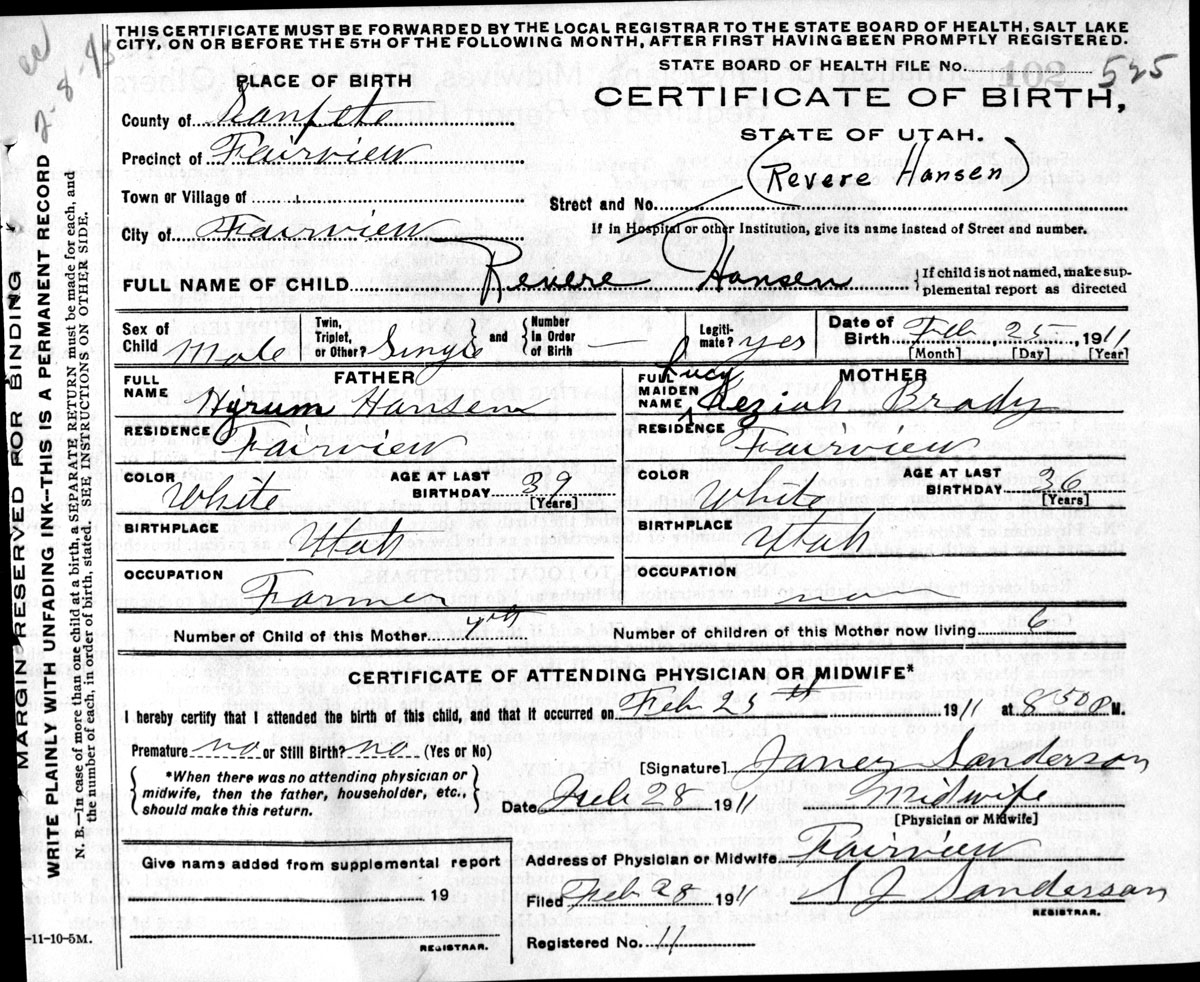 THIS CERTIFICATE MUST BE FORWARDED BY THE LOCAL REGISTRAR TO THE STATE BOARD OF HEALTH, SALT LAKE
CITY, ON OR BEFORE THE 5TH OF THE FOLLOWING MONTH, AFTER FIRST HAVING BEEN PROMPTLY REGISTERED.
STATE BOARD OF HEALTH FILE No. 102 525
PLACE OF BIRTH
CERTIFICATE OF BIRTH,
STATE OF UTAH.
County of Sanpete
Precinct of Fairview
Town or Village of
(Revere Hansen)
Street and No.
City of Fairview
If in Hospital or other Institution, give its name instead of Street and number.
FULL NAME OF CHILD Revere Hansen
{If child is not named, make sup-
plemental report as directed
Sex of Child Male
Twin, Triplet, or Other? Single
and {Number in Order of Birth —
Legiti-mate? yes
Date of Birth Feb 25 1911
[Month] [Day] [Year]
FATHER
FULL NAME Hyrum Hansen
RESIDENCE Fairview
COLOR White
AGE AT LAST BIRTHDAY 39 [Years]
BIRTHPLACE Utah
OCCUPATION Farmer
MOTHER
FULL MAIDEN NAME Lucy Keziah Brady
RESIDENCE Fairview
COLOR White
AGE AT LAST BIRTHDAY 36 [Years]
BIRTHPLACE Utah
OCCUPATION
Number of Child of this Mother 7th
Number of children of this Mother now living 6
CERTIFICATE OF ATTENDING PHYSICIAN OR MIDWIFE*
I hereby certify that I attended the birth of this child, and that it occurred on Feb 25th 1911 at 8.50 P M.
Premature no or Still Birth? no (Yes or No)
{*When there was no attending physician or
midwife, then the father, householder, etc.,
should make this return.}
[Signature] Janez Sanderson
Date Feb 28 1911 Midwife
[Physician or Midwife]
Give name added from supplemental report
19
REGISTRAR.
Address of Physician or Midwife Fairview
Filed Feb 28 1911 Sanderson
REGISTRAR.
Registered No. 11
-11-10-5M.
MARGIN RESERVED FOR BINDING
WRITE PLAINLY WITH UNFADING INK—THIS IS A PERMANENT RECORD
N. B.—In case of more than one child at a birth, a SEPARATE RETURN must be made for each, and
the number of each, in order of birth, stated. SEE INSTRUCTION ON OTHER SIDE.